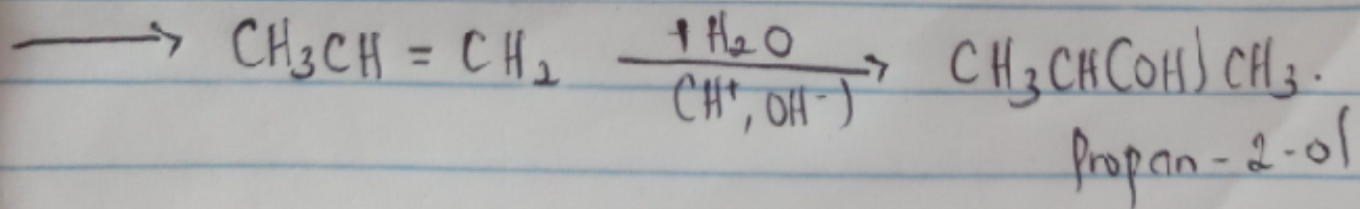 ⟶ CH₃CH = CH₂ +H₂O ⟶ CH₃CH(OH)CH₃.
(H⁺, OH⁻)
Propan-2-ol